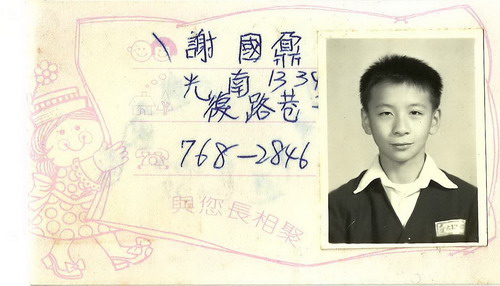 謝國鼐
光南1339
復路巷
768-2846
與您長相聚